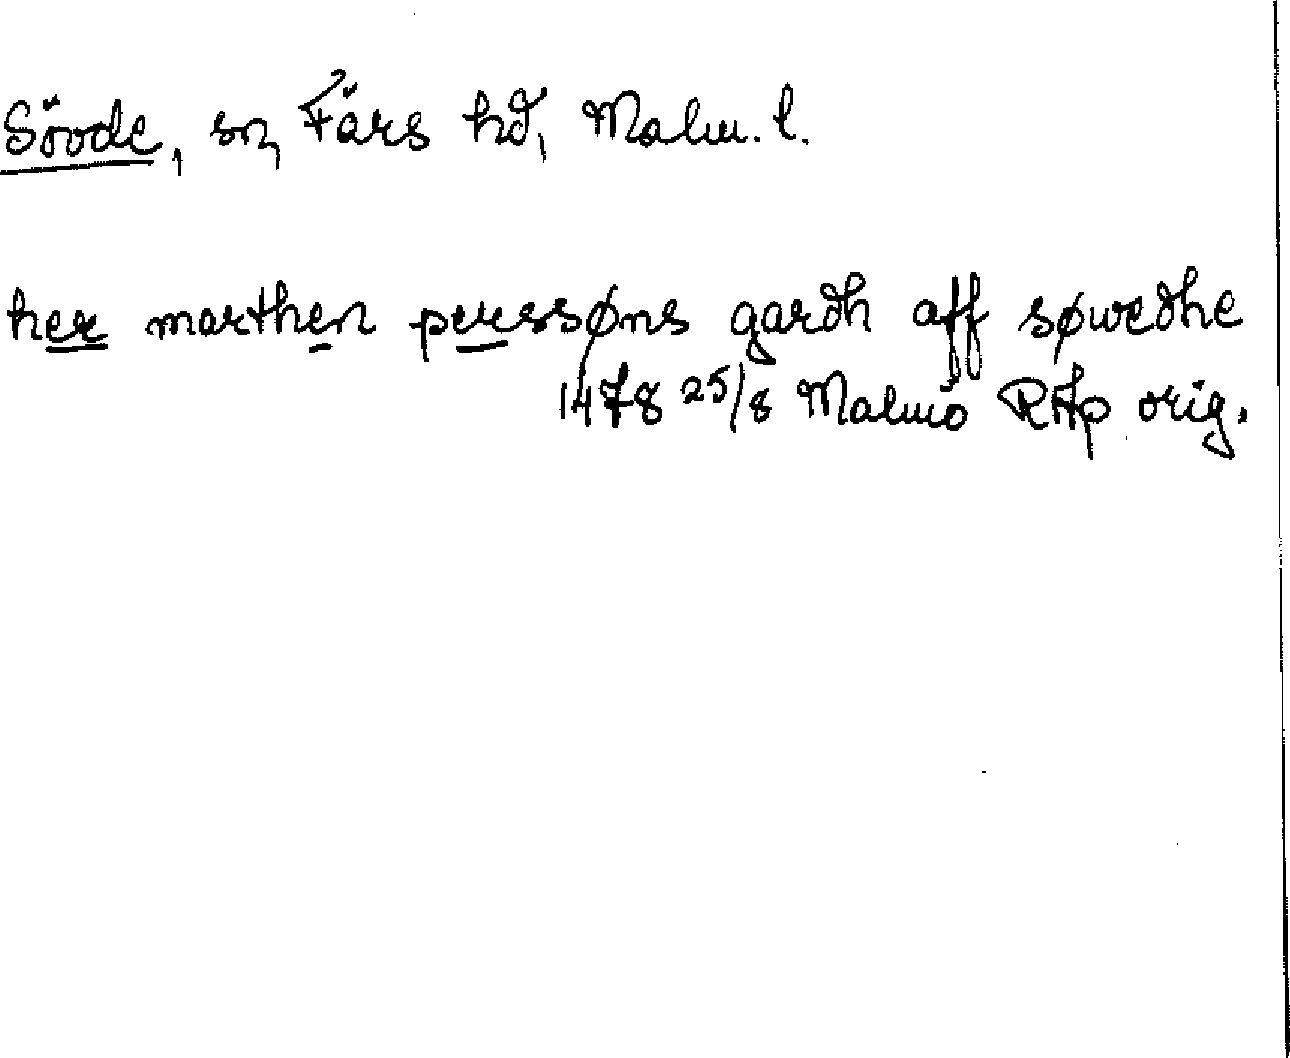 Sövde, sn, Färs hd, Malm. l.
her marthen perssøns gardh aff søwedhe
1478 25/8 Malmö RAp orig.